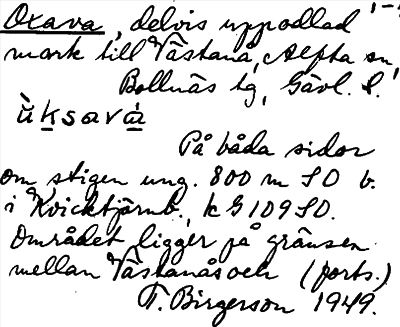 Oxava, delvis uppodlad
mark till Västanå, Alfta sn,
Bollnäs tg, Gävl. l.
ùksavà
På båda sidor
om stigen ung. 800 m SO b.
i Kvicktjärnb., k G 109 SO.
Området ligger på gränsen
mellan Västanås och (forts.)
T. Birgerson 1949.